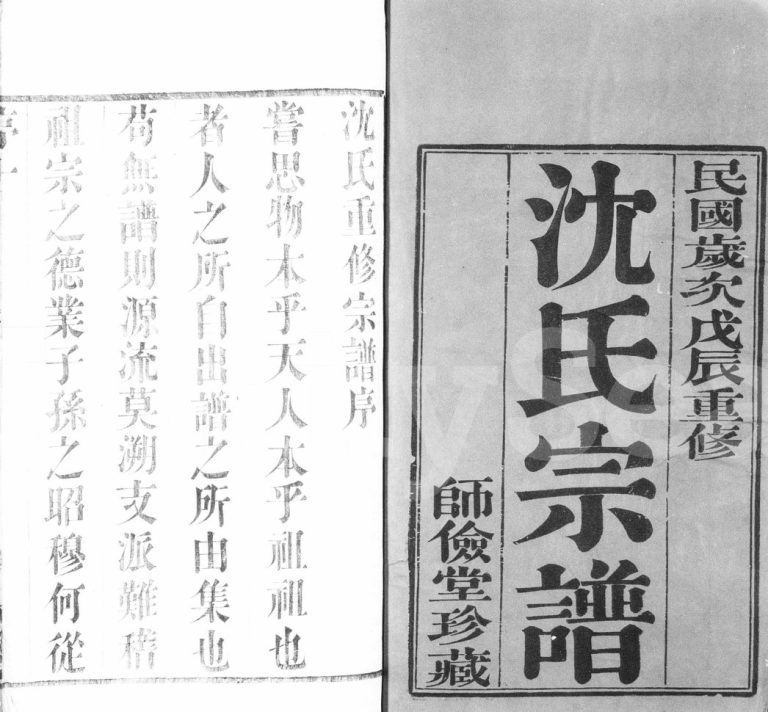 民國歲次戊辰重修
沈氏宗譜
師儉堂珍藏
沈氏重修宗譜序
嘗思物木乎天人本乎祖祖也
者人之所自出譜之所由集也
苟無譜則源流莫溯支派難稽
祖宗之德業子孫之昭穆何從